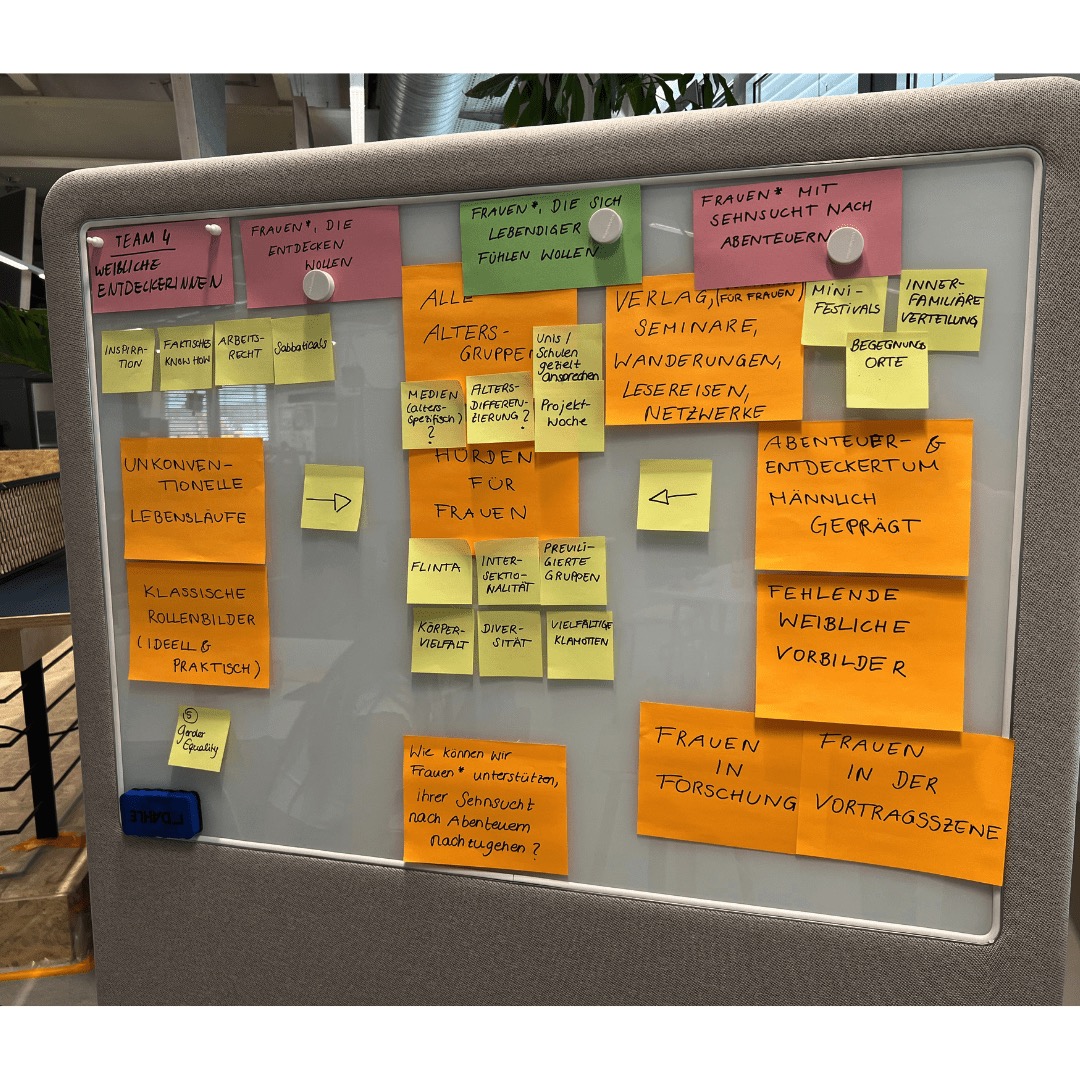 TEAM 4
WEIBLICHE
ENTDECKERINNEN
FRAUEN*, DIE
ENTDECKEN
WOLLEN
FRAUEN*, DIE SICH
LEBENDIGER
FÜHLEN WOLLEN
FRAUEN* MIT
SEHNSUCHT NACH
ABENTEUERN
INSPIRA-
TION
FAKTISCHES
KNOW HOW
ARBEITS-
RECHT
Sabbaticals
ALLE
ALTERS-
GRUPPE
Unis /
Schulen
gezielt
ansprechen
Projekt-
woche
MEDIEN
(alters-
spezifisch)
?
ALTERS-
DIFFEREN-
ZIERUNG?
VERLAG, (FÜR FRAUEN)
SEMINARE,
WANDERUNGEN,
LESEREISEN,
NETZWERKE
MINI-
FESTIVALS
INNER-
FAMILIÄRE
VERTEILUNG
BEGEGNUNGS
ORTE
UNKONVEN-
TIONELLE
LEBENSLÄUFE
→
HÜRDEN
FÜR
FRAUEN
←
ABENTEUER- &
ENTDECKERTUM
MÄNNLICH
GEPRÄGT
KLASSISCHE
ROLLENBILDER
(IDEELL &
PRAKTISCH)
FLINTA
INTER-
SEKTIO-
NALITÄT
PREVILI-
GIERTE
GRUPPEN
KÖRPER-
VIELFALT
DIVER-
SITÄT
VIELFÄLTIGE
KLAMOTTEN
FEHLENDE
WEIBLICHE
VORBILDER
5
gender
Equality
Wie können wir
Frauen* unterstützen,
ihrer Sehnsucht
nach Abenteuern
nachzugehen?
FRAUEN
IN
FORSCHUNG
FRAUEN
IN DER
VORTRAGSSZENE
DAHLE